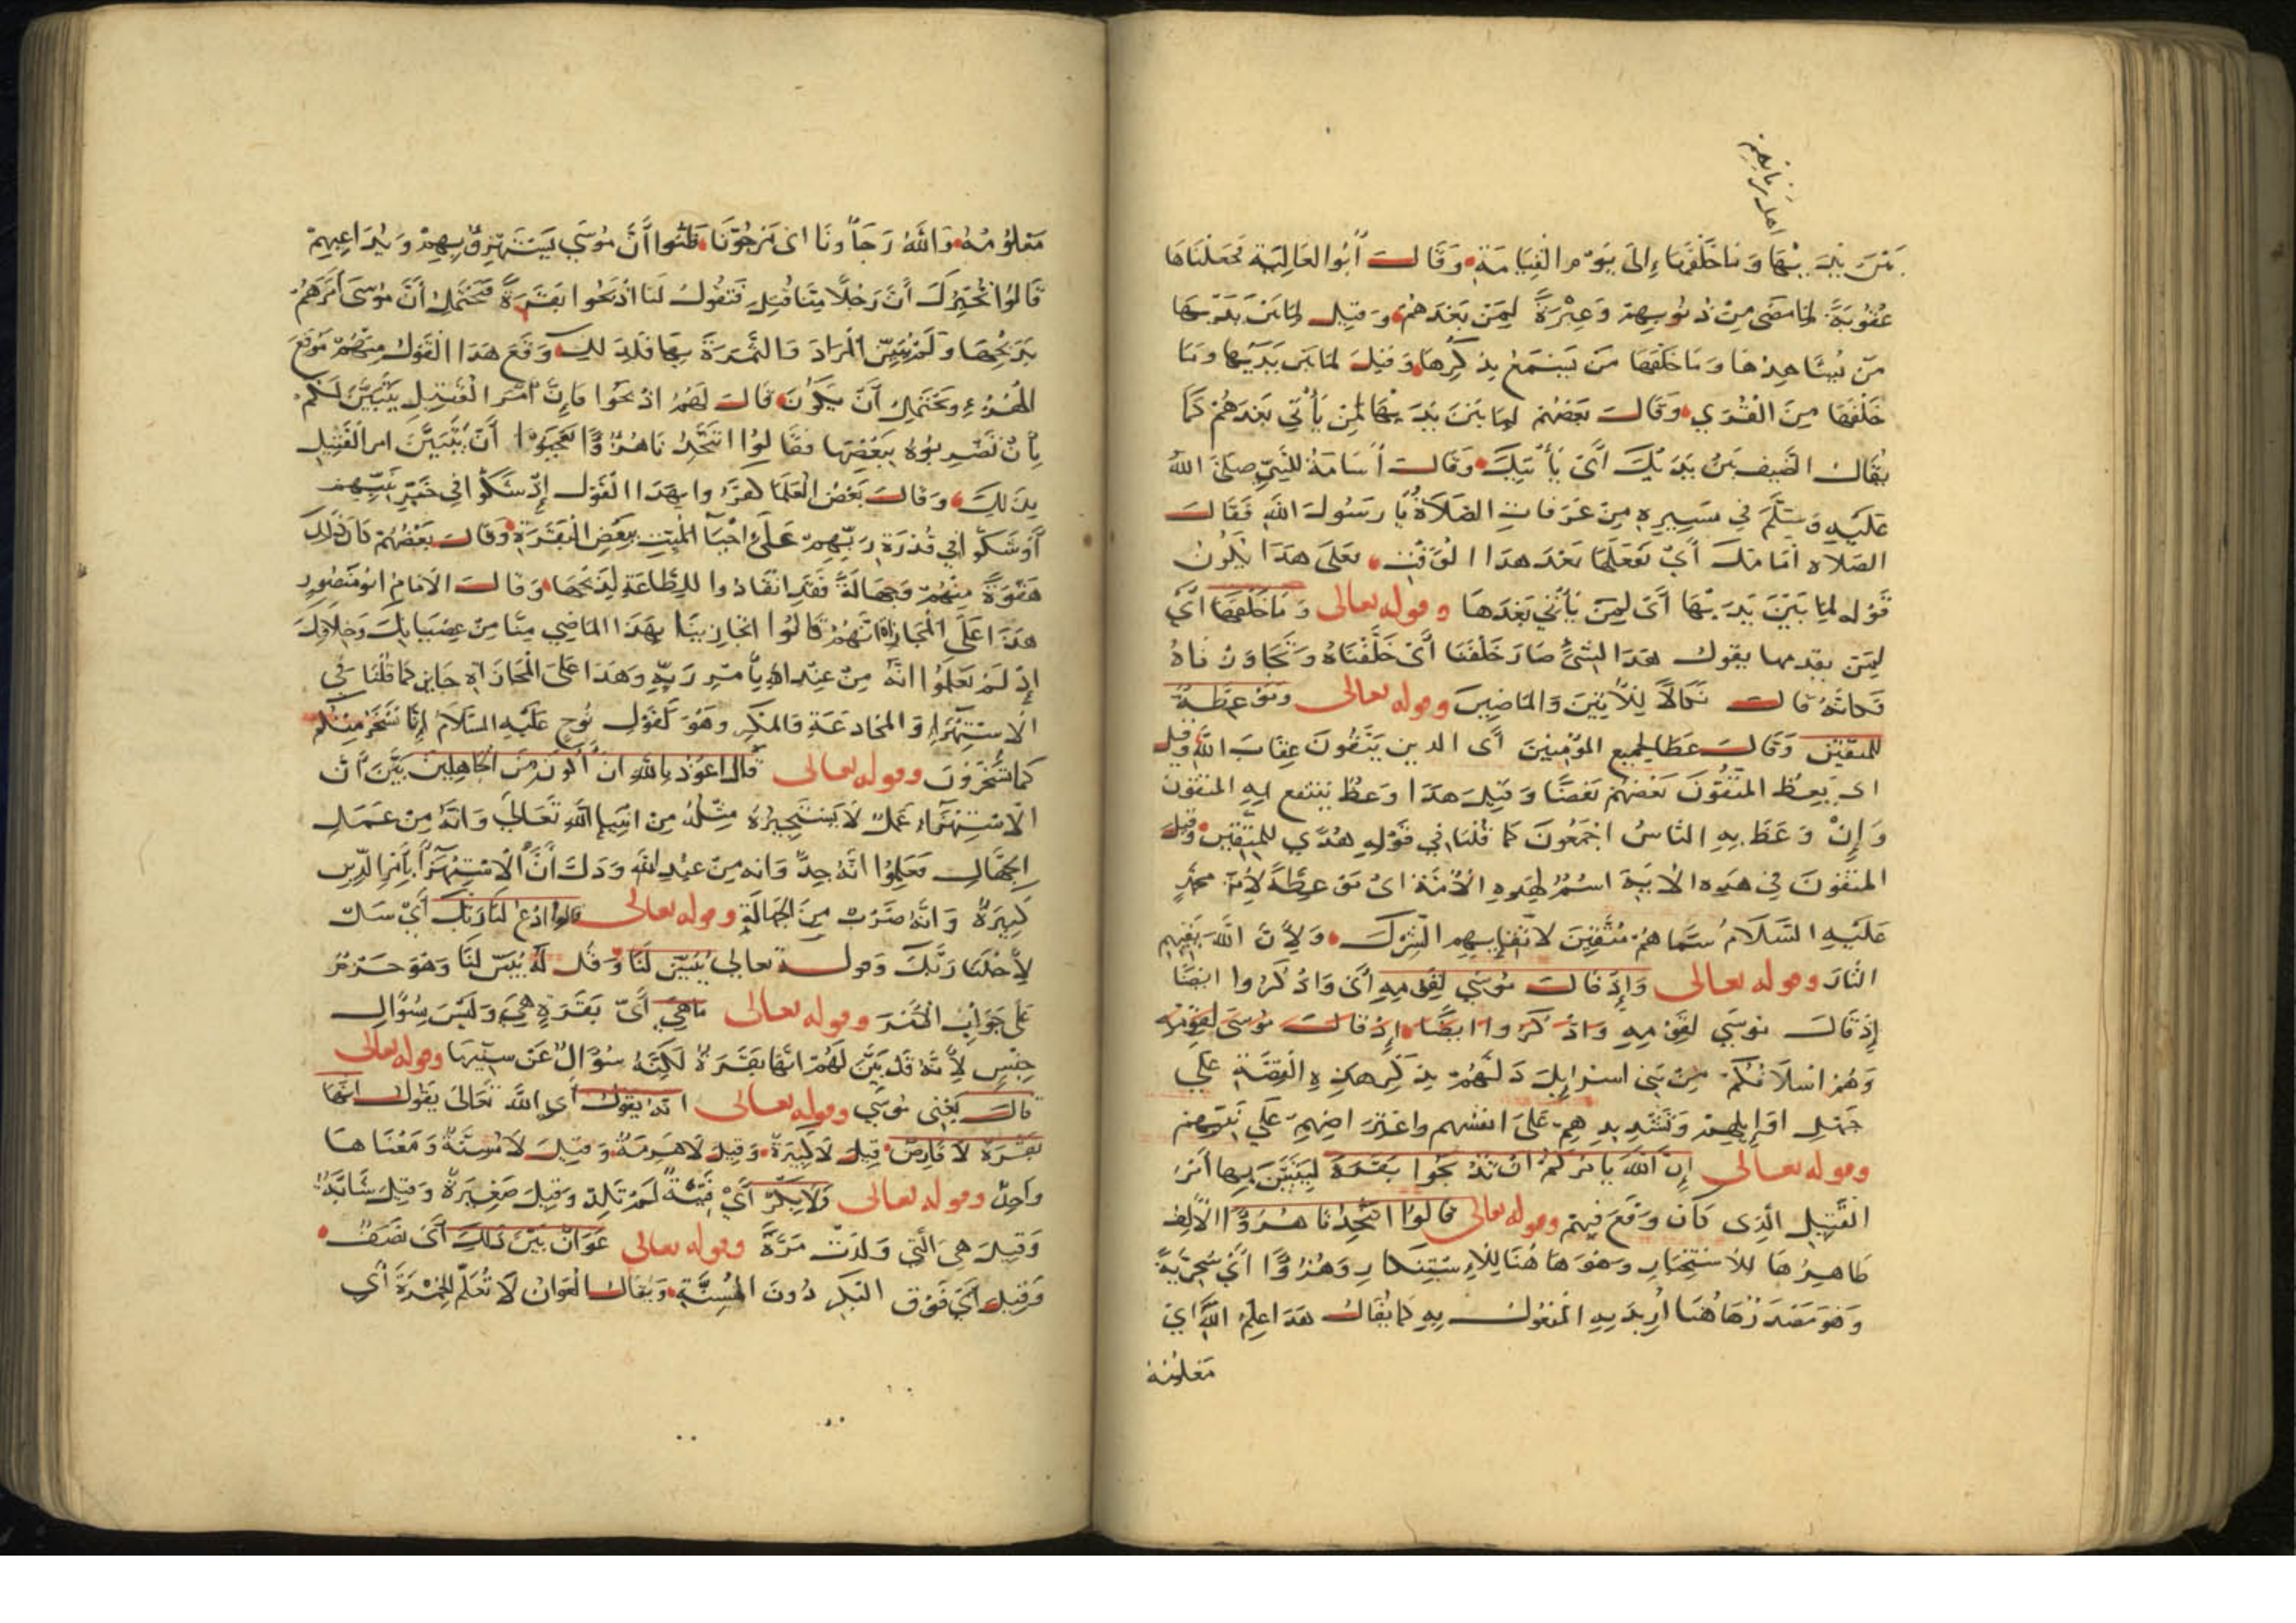 اهل زمانهم
بين يديها وما خلفها إلى يوم القيامة وقال أبو العالية فجعلناها
عقوبة لما مضى من ذنوبهم وعبرة لمن بعدهم وقيل لما بين يديها
من يشاهدها وما خلفها من يسمع بذكرها وقيل لما بين يديها وما
خلفها من القرى وقال بعضهم لما بين يديها لمن يأتي بعدهم كما
يقال الضيف بين يديك أي يأتيك وقال أسامة للنبي صلى الله
عليه وسلم في مسيره من عرفات الصلاة يا رسول الله فقال
الصلاة امامك أي تفعلها بعد هذا الوقت فعلى هذا يكون
قوله لما بين يديها أي لمن يأتي بعدها وقوله تعالى وما خلفها أي
لمن تقدمها يقول هذا الشئ صار خلفنا أي خلفناه وتجاوزناه
فكانه قال نكالا للآتين والماضين وقوله تعالى وموعظة
للمتقين وقال عطا لجميع المؤمنين أي الذين يتقون عقاب الله وقيل
اي يعظ المتقون بعضهم بعضا وقيل هذا وعظ ينتفع به المتقون
وإن وعظ به الناس اجمعون كما قلنا في قوله هدى للمتقين وقيل
المتقون في هذه الاية اسم لهذه الأمة اي موعظة لأمة محمد
عليه السلام سماهم متقين لاتقايهم الشرك ولأن الله يقيهم
النار وقوله تعالى وإذ قال موسى لقومه أي واذكروا ايضا
إذ قال موسى لقومه واذكروا ايضا إذ قال موسى لقومه
وهم اسلافكم من بني اسرايل دلهم بذكر هذه القصة على
جهل اوايلهم وتشديدهم على انفسهم واعتراضهم على نبيهم
وقوله تعالى إن الله يامركم ان تذبحوا بقرة ليتبين بها أمر
القتيل الذي كان وقع فيهم وقوله تعالى قالوا اتتخذنا هزوا الألف
ظاهرها للاستخبار وهو ها هنا للاستنكار وهزوا أي سخرية
وهو مصدر ها هنا أريد به المفعول به كما يقال هذا علم الله اي
معلومه
معلومه والله رجاؤنا اي مرجونا ظنوا أن موسى يستهزئ بهم ويداعبهم
قالوا نخبرك أن رجلا منا قتل فتقول لنا اذبحوا بقرة فيحتمل أن موسى أمرهم
بذبحها ولم يبين المراد والثمرة بها فلذلك وقع هذا القول منهم موقع
الهزء ويحتمل أن يكون قال لهم اذبحوا فإن أمر القتيل يتبين لكم
بأن تضربوه ببعضها فقالوا اتتخذنا هزوا تعجبوا أن يتبين امر القتيل
بذلك وقال بعض العلما كفروا بهذا القول إذ شكوا في خبر نبيهم
أو شكوا في قدرة ربهم على احيا الميت ببعض البقرة وقال بعضهم كان ذلك
هفوة منهم وجهالة فقد انقادوا للطاعة لذبحها وقال الامام ابو منصور
هذا على المجازاة انهم قالوا اتجازينا بهذا الماضي منا من عصيانك وخلافك
إذ لم يعلموا انه من عند الله يأمر ربه وهذا على المجازاة جايز كما قلنا في
الاستهزاء والمخادعة والمكر وهو كقول نوح عليه السلام إنا نسخر منكم
كما تسخرون وقوله تعالى قال اعوذ بالله ان أكون من الجاهلين بين أن
الاستهزاء عمل لا يستجيزه مثله من انبيا الله تعالى وانه من عمل
الجهال فعلموا انه جد وانه من عند الله ودل أن الاستهزا بأمر الدين
كبيرة وانه ضرب من الجهالة وقوله تعالى قالوا ادع لنا ربك أي سل
لأجلنا ربك وقوله تعالى يبين لنا وقل له يبين لنا وهو جزم
على جواب الأمر وقوله تعالى ما هي أي بقرة هي وليس سؤال
جنس لأنه قد بين لهم انها بقرة لكنه سؤال عن سنها وقوله تعالى
قال يعني موسى وقوله تعالى انه يقول أي الله تعالى يقول انها
بقرة لا فارض قيل لا كبيرة وقيل لا هرمة وقيل لا مسنة ومعناها
واحد وقوله تعالى ولا بكر أي فتية لم تلد وقيل صغيرة وقيل شابة
وقيل هي التي ولدت مرة وقوله تعالى عوان بين ذلك أي نصف
وقيل أي فوق البكر دون المسنة ويقال العوان لا تعلم الخمرة أي